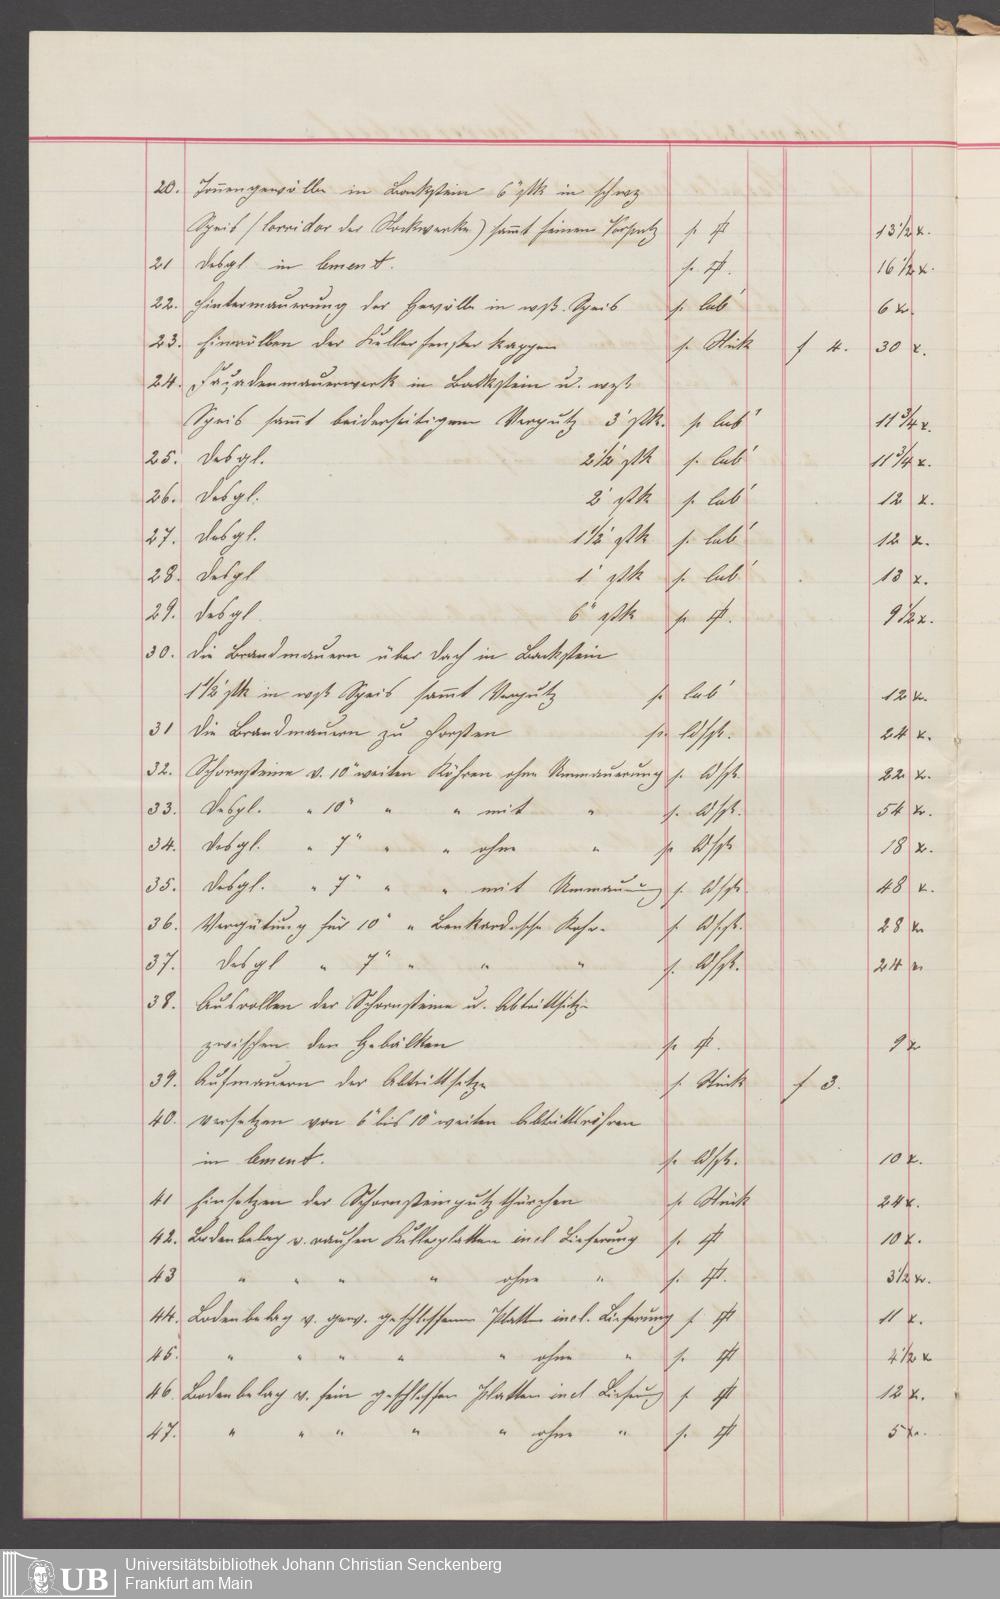 20. Tonnengewölbe in Backstein 6" stk in schwz
Speis (Corridor der Stockwerke) sam̄t feinem Verputz p. □' 13½ x.
21 desgl in Cement. p. □'. 16½ x.
22. Hintermauerung der Gewölbe in wß. Speis p. Cub' 6 xr.
23. Einwölben der Kellerfenster kappen p. Stück f 4. 30 x.
24. Façadenmauerwerk in Backstein u. wß
Speis sam̄t beiderseitigem Verputz 3' stk. p Cub' 11¾ x.
25. desgl. 2½' stk p. Cub' 11¾ x.
26. desgl. 2' stk p. Cub' 12 x.
27. desgl. 1½' stk p. Cub' 12 x.
28. desgl 1' stk p. Cub' 13 x.
29. desgl. 6" stk p □'. 9½ x.
30. die Brandmauern über Dach in Backstein
1½' stk in wß Speis sam̄t Verputz p Cub' 12 x.
31 die Brandmauern zu p. ldfß. 24 x.
32. Schornsteine v. 10" weiten Röhren ohne Ummauerung p. ldfß. 22 x.
33. desgl. " 10" " " mit " p. ldfß. 54 xr.
34. desgl. " 7" " " ohne " p ldfß 18 x.
35. desgl. " 7" " " mit Ummauerung p. ldfß. 48 x.
36. Vergütung für 10" " Rohr. p. ldfß. 28 xr
37. desgl " 7" " " " p. ldfß. 24 x
38. Ausrollen der Schornsteine u. Abtrittsitze
zwischen den Gebälken p. □'. 9 x
39. Aufmauern der Abtrittsitze p. Stück f 3.
40. Versetzen von 6" bis 10" weiten Abtrittsröhren
in Cement. p. ldfß. 10 x.
41 Einsetzen der Schornsteinputzthürchen p. Stück 24 x.
42. Bodenbelag v. rauhen Kellerplatten incl Lieferung p. □' 10 x.
43 " " " " ohne " p. □'. 3½ xr.
44. Bodenbelag v. gew. geschliffenen Platten incl. Lieferung p □' 11 x.
45. " " " " " ohne " p. □' 4½ x
46. Bodenbelag v. fein geschliffen Platten incl Lieferung p □' 12 x.
47. " " " " " ohne " p. □' 5 xr.
UB Universitätsbibliothek Johann Christian Senckenberg
Frankfurt am Main